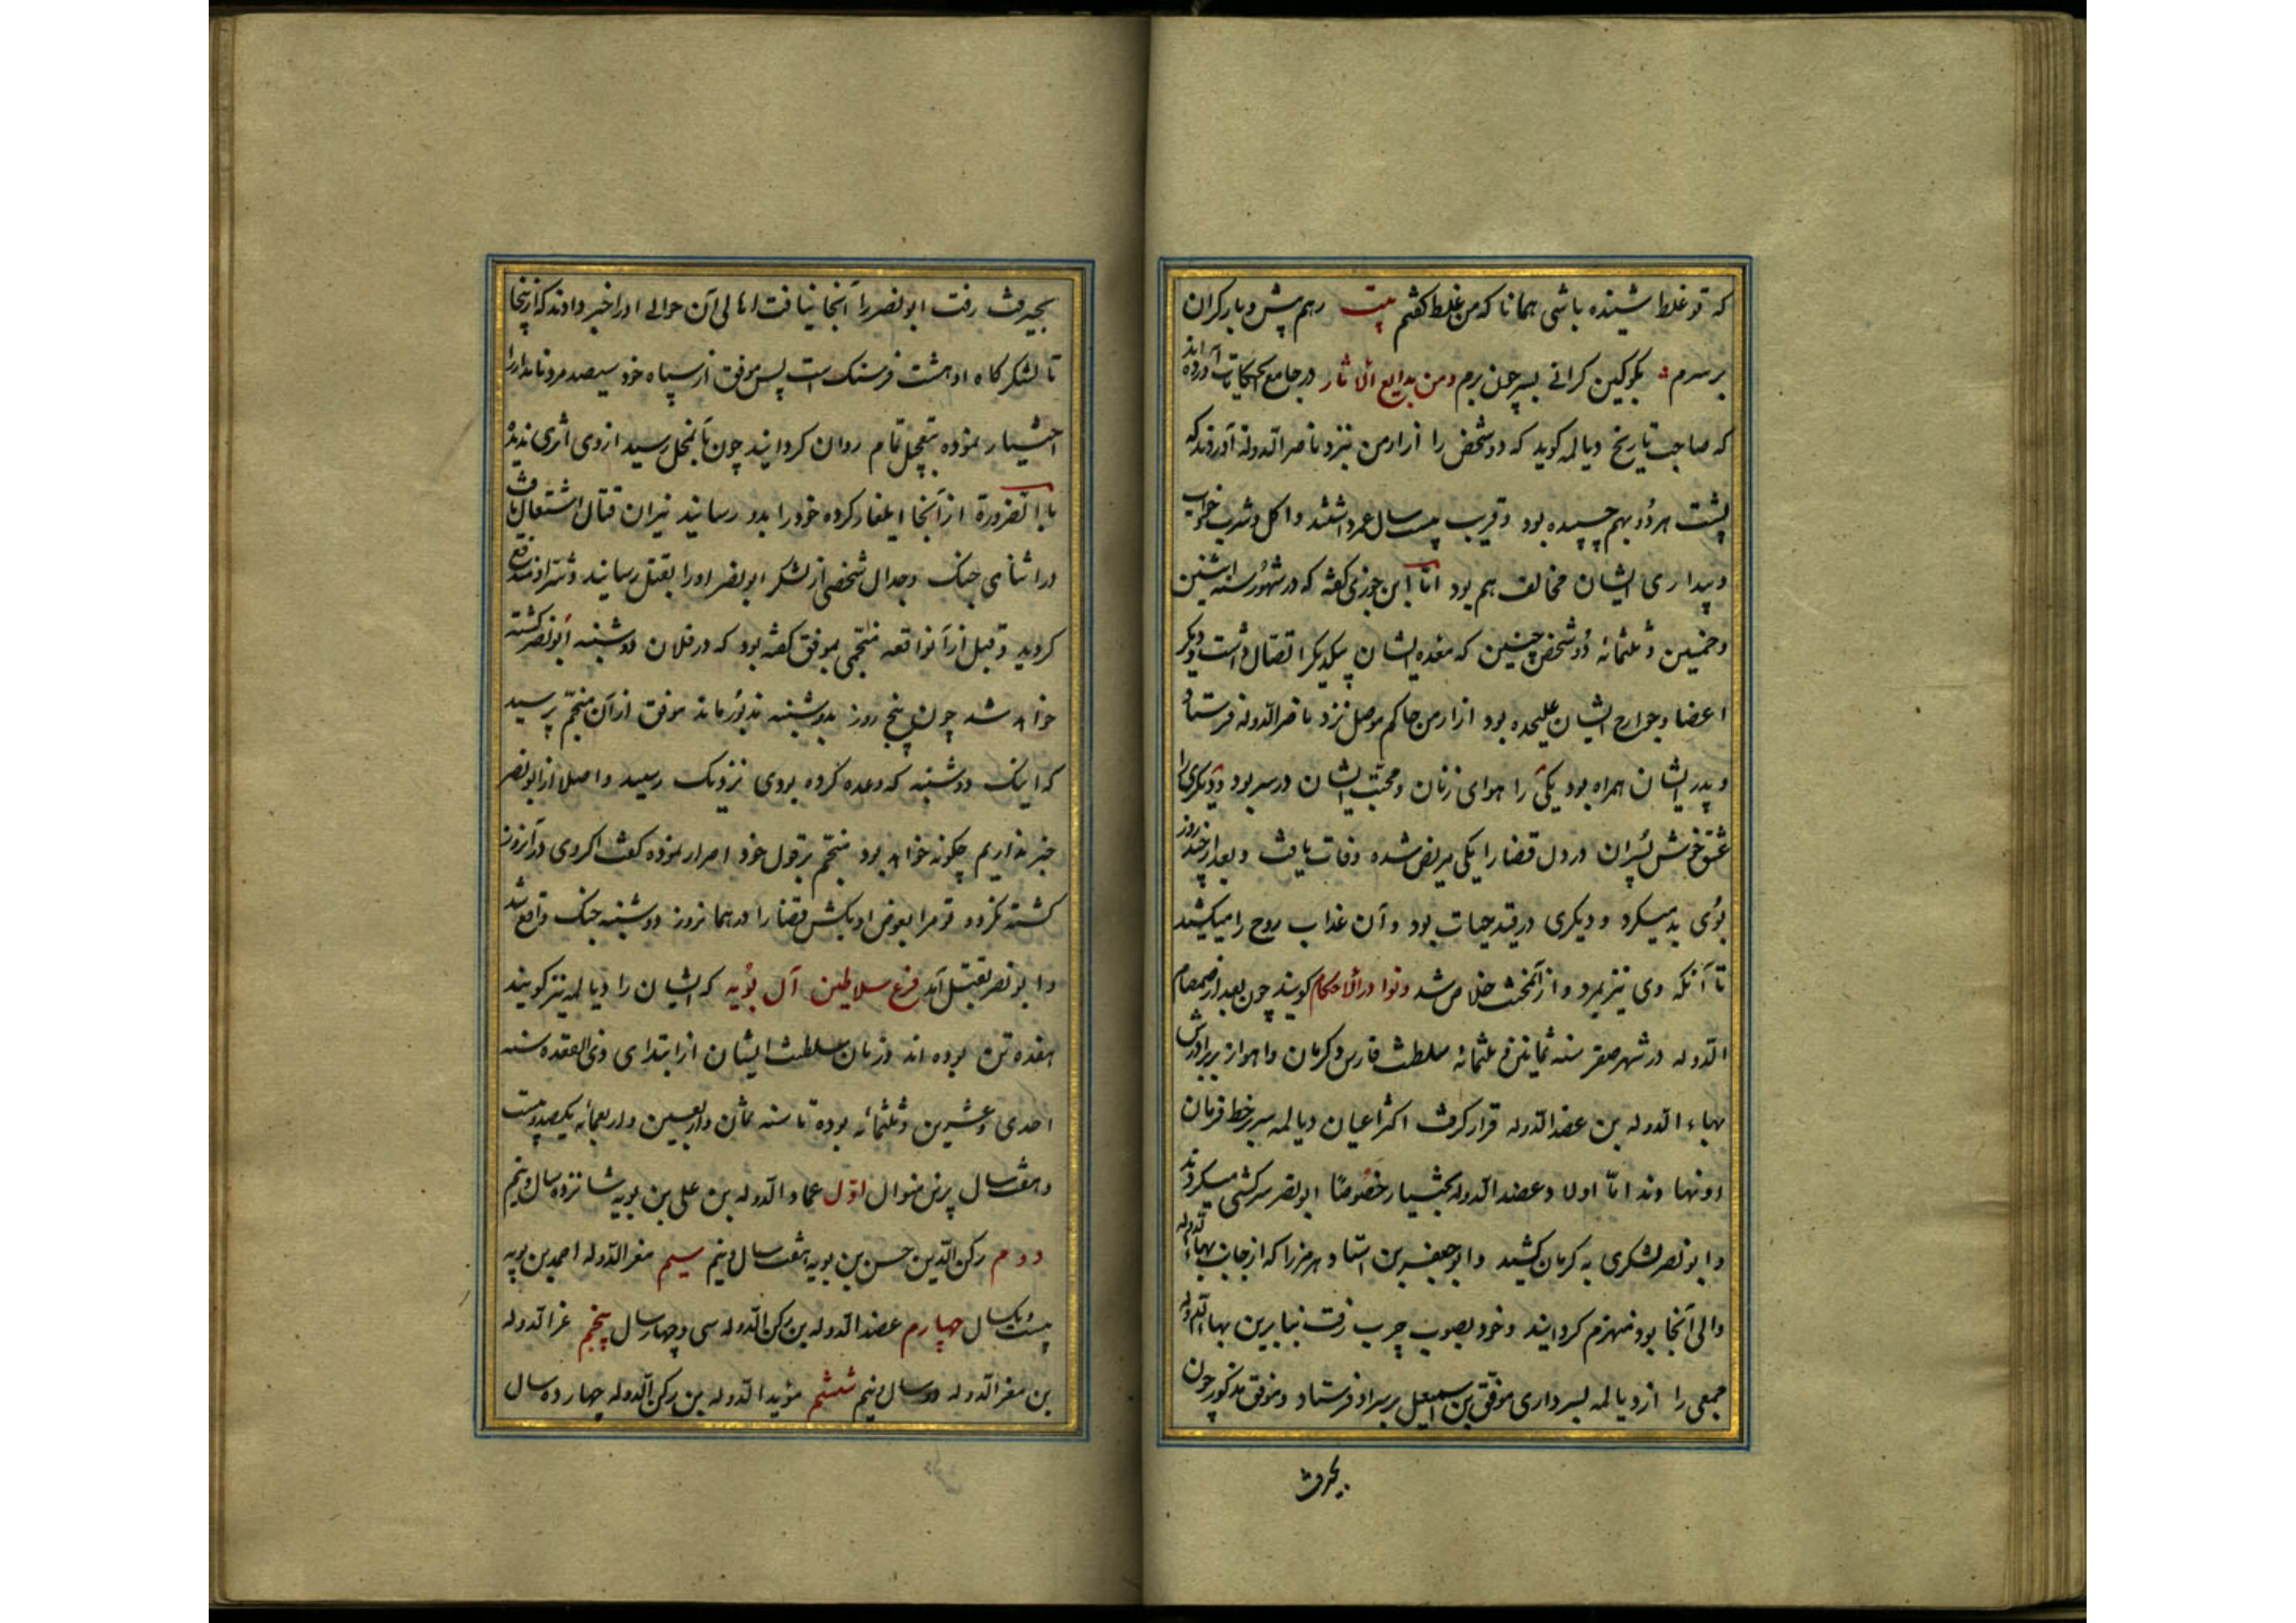 که تو غلط شنیده باشی همانا که من غلط گفتم بیت رهم پیش و بار گران
برسرم بگو کین گرانی بسر چون برم ومن بدایع الآثار در جامع الحکایات آورده اند
که صاحب تاریخ دیالمه کوید که دو شخص را از ارمن نزد ناصر الدوله آوردند که
پشت هر دو بهم چسپیده بود و قریب بیست سال عمر داشتند و اکل و شرب و خواب
و بیداری ایشان مخالف هم بود اما ابن جوزی کفته که در شهور سنه اثنین
و خمسین و ثلثمائه دو شخص چنین که معده ایشان بیکدیکر اتصال داشت و دیکر
اعضا و جوارح ایشان علیحده بود از ارمن حاکم موصل نزد ناصر الدوله فرستاد
و پدر ایشان همراه بود یکی را هوای زنان و محبت ایشان در سر بود و دیکری را
عشق خوش پسران در دل قضا را یکی مریض شده وفات یافت و بعد از چند روز
بوی بد میکرد و دیکری در قید حیات بود و آن عذاب روح را میکشید
تا آنکه وی نیز بمرد و از آن محنت خلاص شد ونوادر الاحکام کویند چون بعد از صمصام
الدوله در شهر صفر سنه ثمانین و ثلثمائه سلطنت فارس و کرمان و اهواز بر برادرش
بهاء الدوله بن عضد الدوله قرار کرفت اکثر اعیان دیالمه سر بر خط فرمان
او نهادند اما اولاد عضد الدوله بختیار خصوصا ابو نصر سرکشی میکردند
و ابو نصر لشکری به کرمان کشید و ابو جعفر بن استاد هرمز را که از جانب بهاء الدوله
والی آنجا بود منهزم کردانید و خود بصوب جیرفت رفت بنابرین بهاء الدوله
جمعی را از دیالمه بسرداری موفق بن اسمعیل بر سر او فرستاد و موفق مذکور چون
بجیرفت
بجیرفت رفت ابو نصر را آنجا نیافت اهالی آن حوالی او را خبر دادند که از ینجا
تا لشکرگاه او هشت فرسنک است پس موفق از سپاه خود سیصد مرد نامدار را
اختیار نموده بتعجیل تمام روان کردانید چون بآن محل رسید از وی اثری ندید
بالضرورة از آنجا ایلغار کرده خود را بدو رسانید نیران قتال اشتعال یافت
در اثنای جنک و جدال شخصی از لشکر ابو نصر او را بقتل رسانید و شر او مندفع
کردید و قبل از آنواقعه منجمی بموفق کفته بود که در فلان دوشنبه ابو نصر کشته
خواهد شد چون پنج روز بدوشنبه مذبور ماند موفق از آن منجم پرسید
که اینک دوشنبه که وعده کرده بودی نزدیک رسید و اصلا از ابو نصر
خبر نداریم چکونه خواهد بود منجم بر قول خود اصرار نموده کفت اکر وی در آنروز
کشته نکردد تو مرا بعوض او بکش قضا را در همانروز دوشنبه جنک واقع شد
و ابو نصر بقتل آمد فرع سلاطین آل بویه که ایشان را دیالمه نیز کویند
هفده تن بوده اند و زمان سلطنت ایشان از ابتدای ذی القعده سنه
احدی و عشرین و ثلثمائه بوده تا سنه ثمان و اربعین و اربعمائه یکصد و بیست
و هفت سال برین منوال اول عماد الدوله بن علی بن بویه شانزده سال و نیم
دوم رکن الدین حسن بن بویه هفت سال و نیم سیم معز الدوله احمد بن بویه
بیست و یک سال چهارم عضد الدوله بن رکن الدوله سی و چهار سال پنجم عز الدوله
بن معز الدوله دو سال و نیم ششم مؤید الدوله بن رکن الدوله چهارده سال